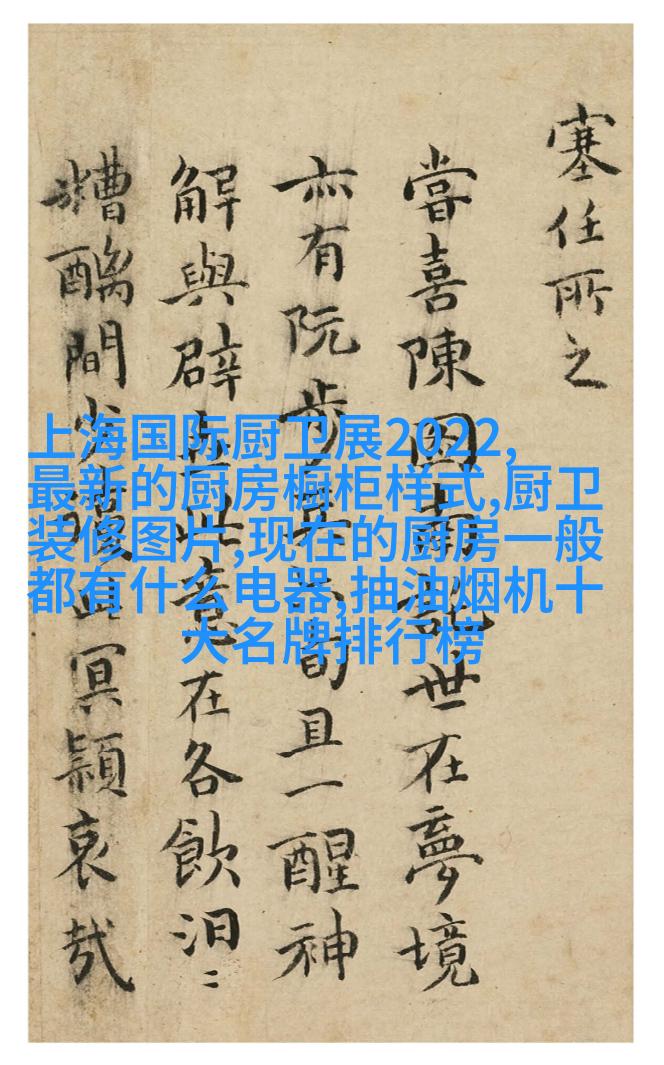 上海国际厨卫展2022,
最新的厨房橱柜样式,厨卫
装修图片,现在的厨房一般
都有什么电器,抽油烟机十
大名牌排行榜
塞任所之
嘗喜陳南說世在夢境
亦有阮步兵旬且一醒神
解與辟此意在各飲汩〻
糟醨間少冥穎哀哉